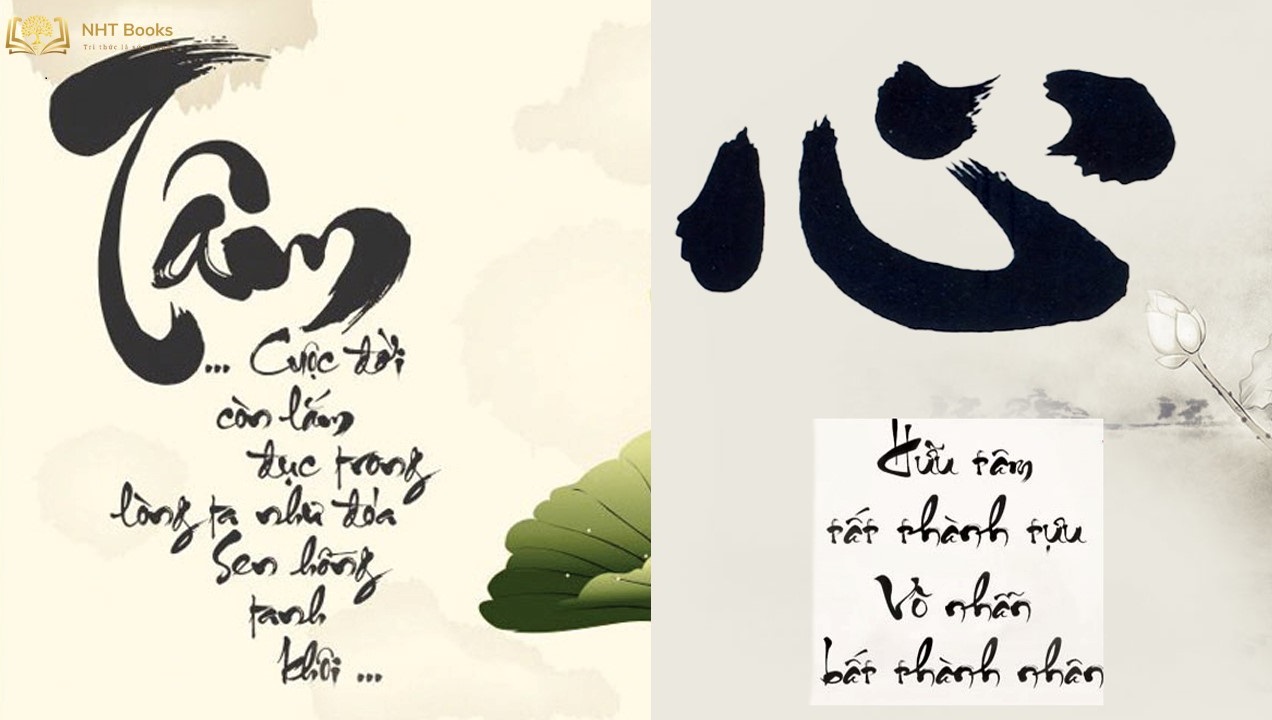 NHT Books
Tri thức là sức mạnh
Tâm
... Cuộc đời
còn lắm
đục trong
lòng ta như đóa
Sen hồng
tanh
khôi ...
心
Hữu tâm
tất thành tựu
Vô nhẫn
bất thành nhân